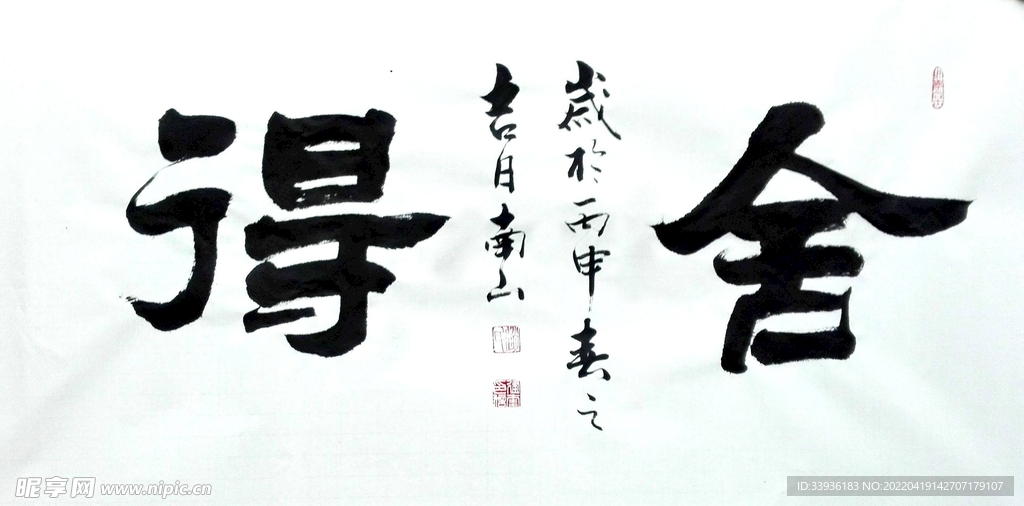 舍得
歲於丙申春之
吉月南山
昵享网 www.nipic.cn
ID:33936183 NO:20220419142707179107